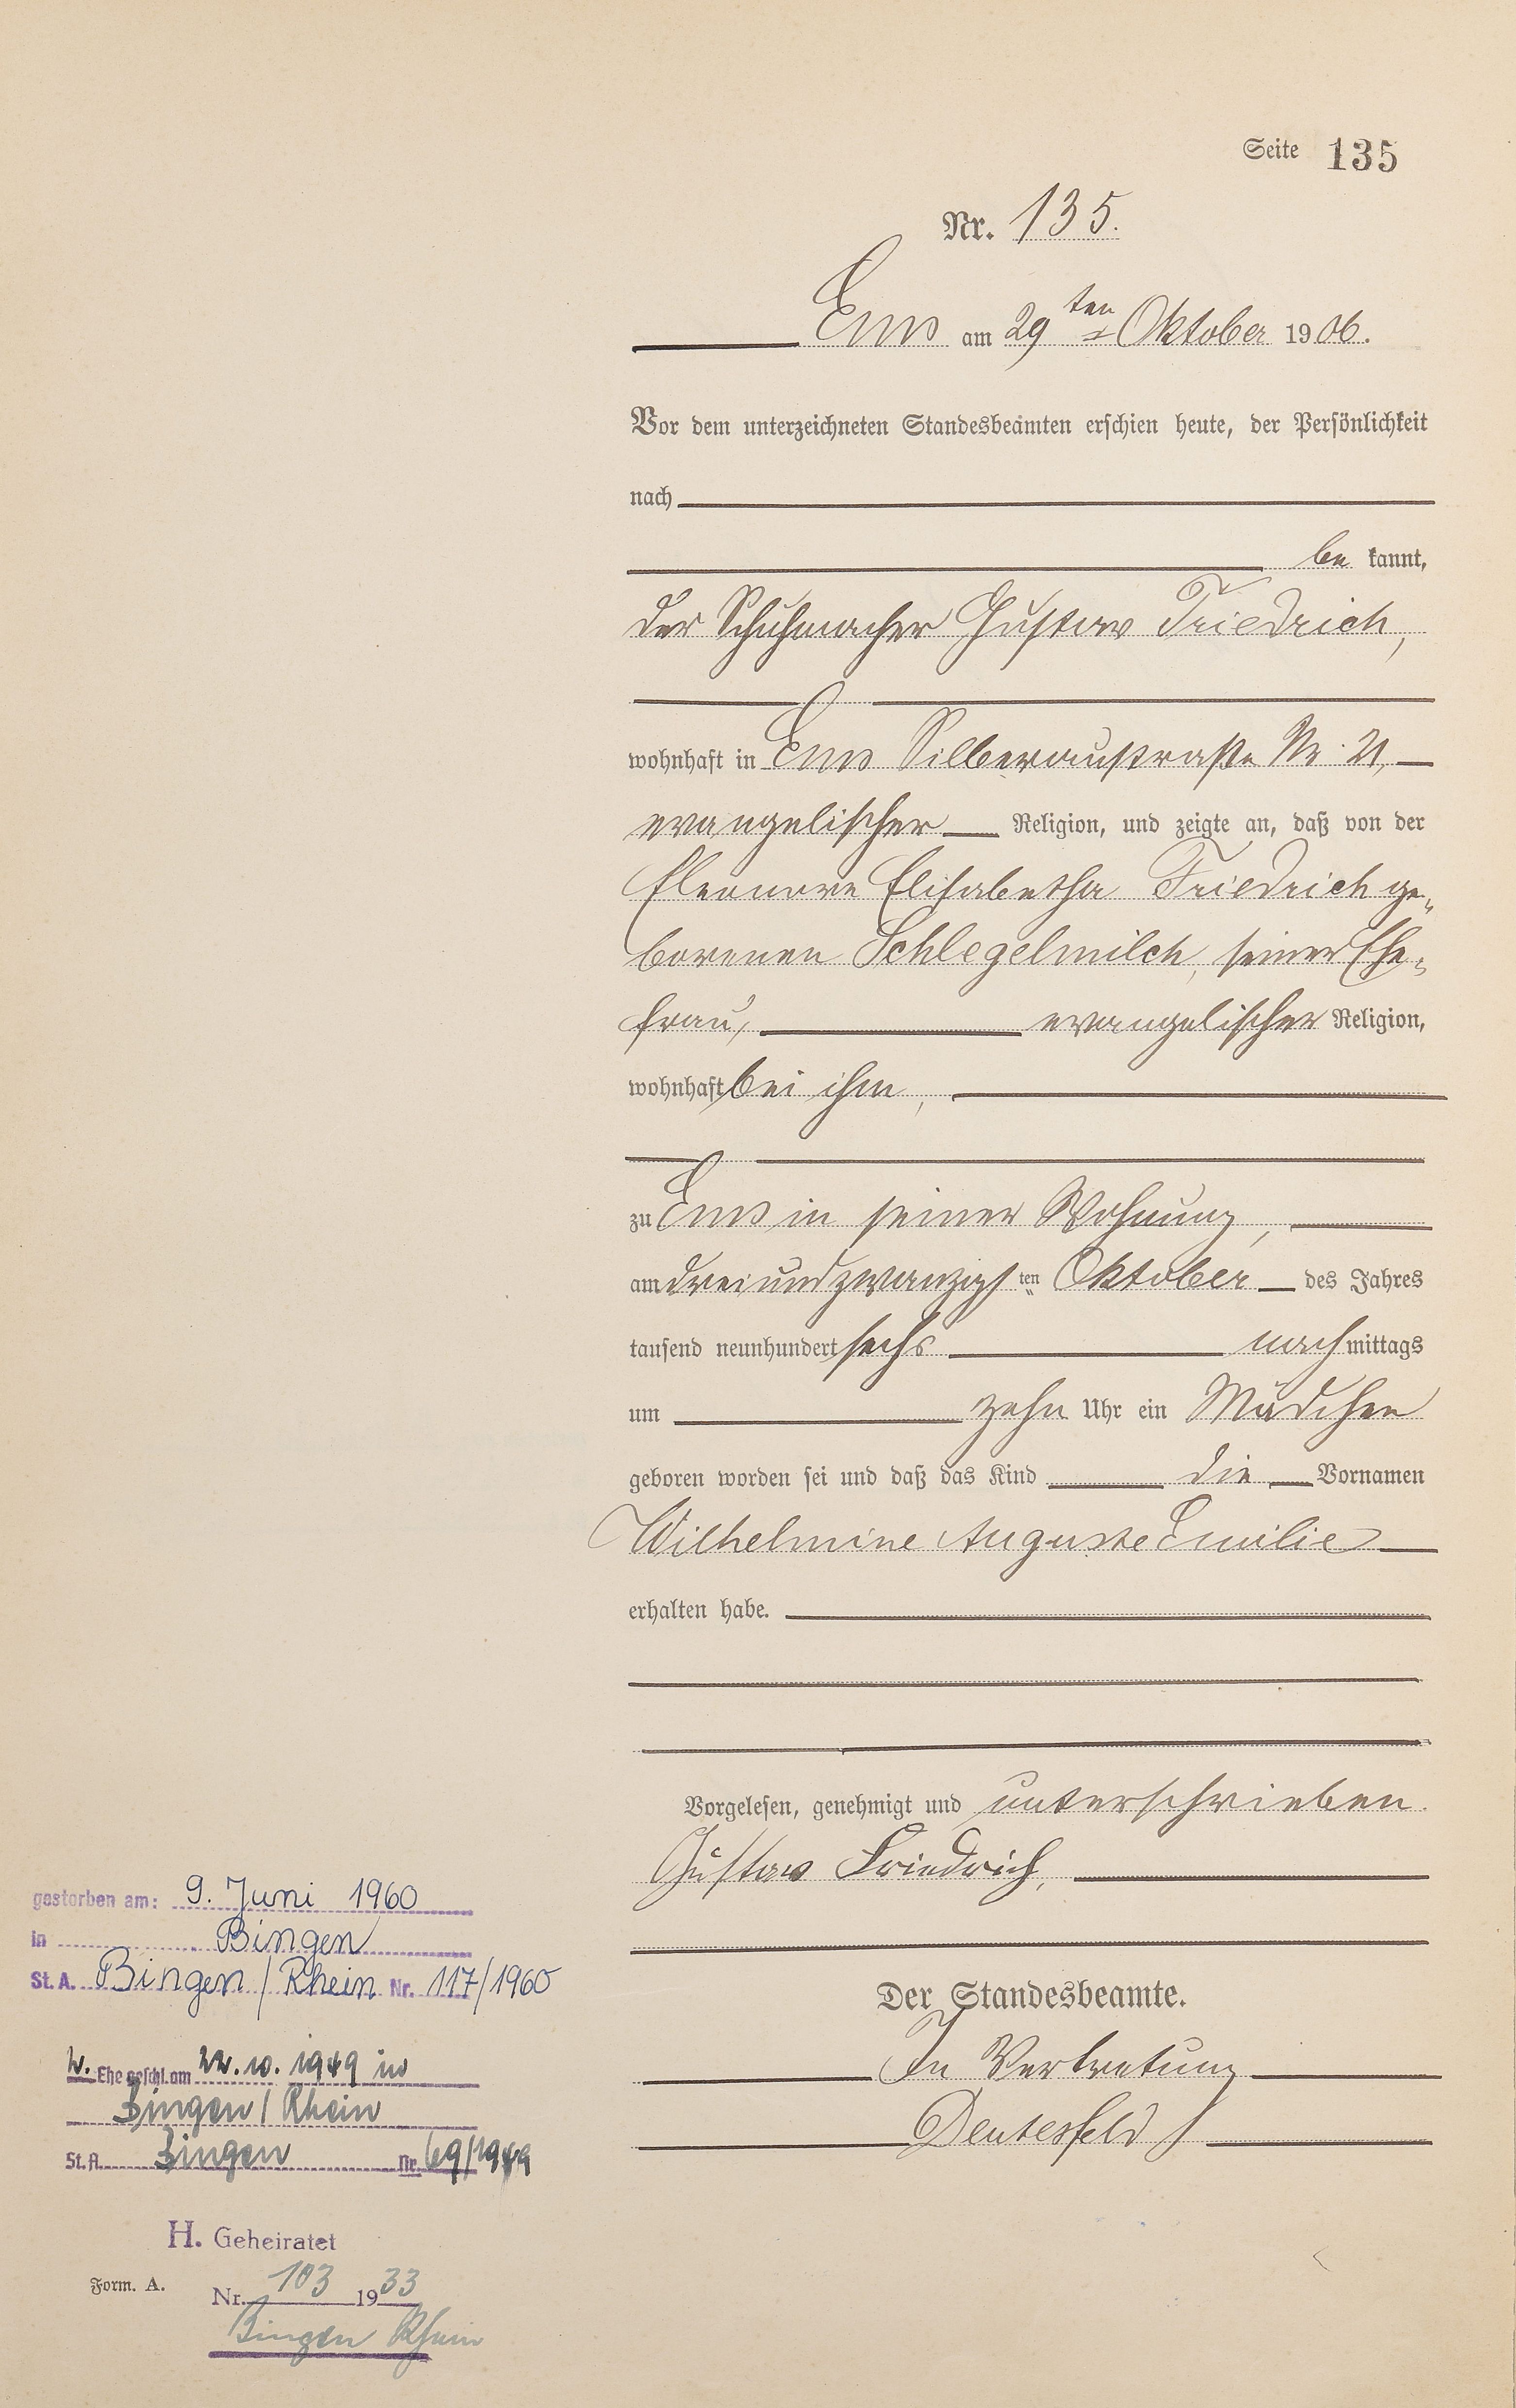 Seite 135
Nr. 135.
Ems am 29ten Oktober 1906.
Vor dem unterzeichneten Standesbeamten erschien heute, der Persönlichkeit
nach
be kannt,
der Schuhmacher Gustav Friedrich,
wohnhaft in Ems Silberaustraße Nr. 21,
evangelischer Religion, und zeigte an, daß von der
Eleonore Elisabetha Friedrich ge„
borenen Schlegelmilch, seiner Ehe„
frau, evangelischer Religion,
wohnhaft bei ihm,
zu Ems in seiner Wohnung,
am dreiundzwanzigsten Oktober des Jahres
tausend neunhundert sechs nachmittags
um zehn Uhr ein Mädchen
geboren worden sei und daß das Kind die Vornamen
Wilhelmine Auguste Emilie
erhalten habe.
Vorgelesen, genehmigt und unterschrieben.
Gustav Friedrich,
Der Standesbeamte.
In Vertretung
gestorben am: 9. Juni 1960
in Bingen
St. A. Bingen / Rhein Nr. 117/1960
2. Ehe geschl. am 22.10.1949 in
Bingen / Rhein
St. A. Bingen Nr. 69/1949
H. Geheiratet
Form. A. Nr. 103 1933
Bingen Rhein